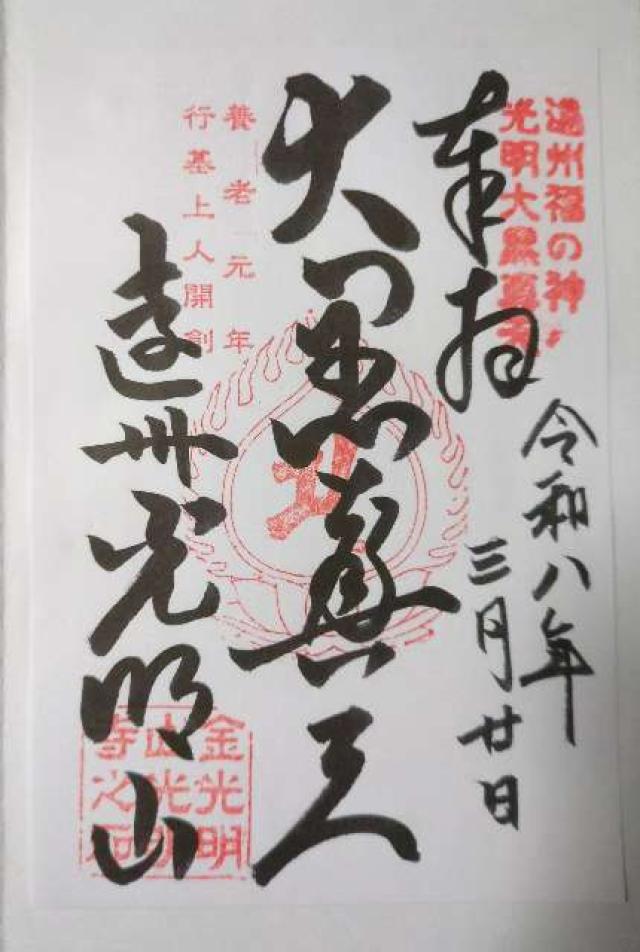 遠州福の神
光明大黒真天
奉拝
令和八年
三月廿日
大黒真天
養老元年
行基上人開創
遠州光明山
金光明
山光明
寺之印